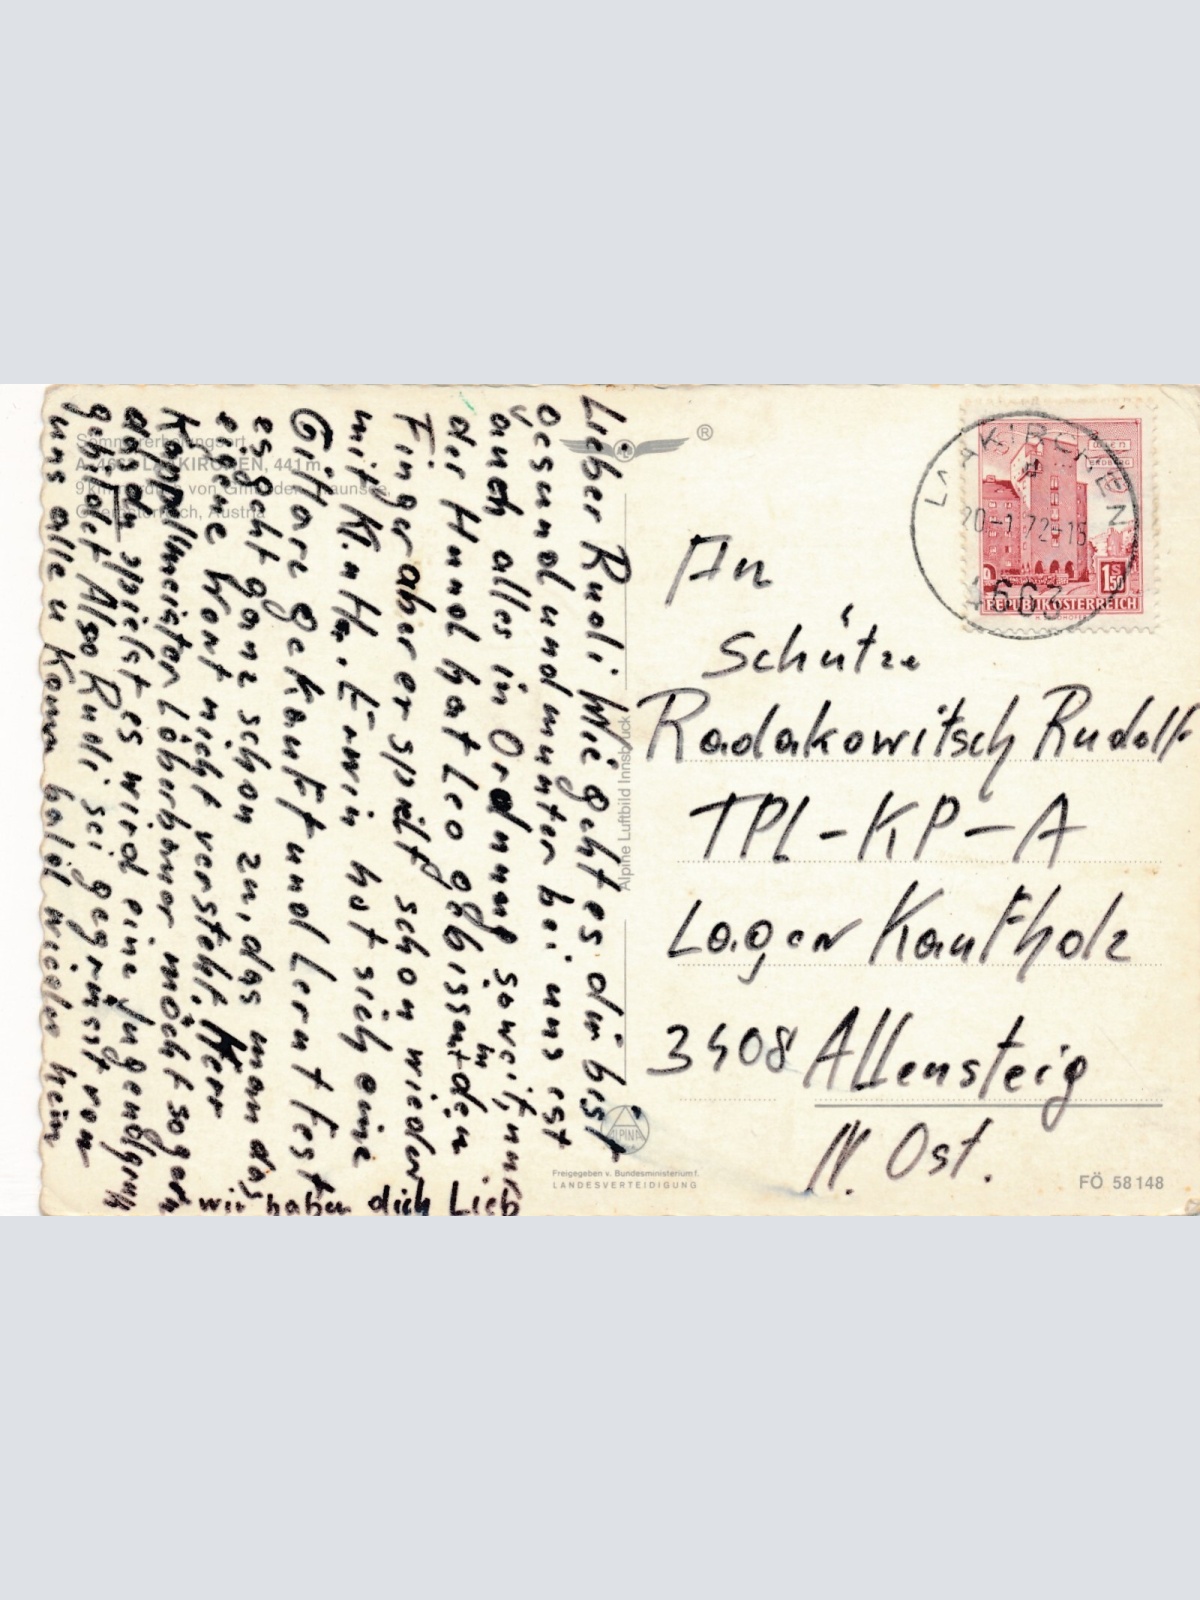 Lieber Rudi! Wie geht es dir bist
Gesund und munter bei uns ist
auch alles in Ordnung soweit, nur
der Hund hat Leo gebissen in den
Finger aber er spielt schon wieder
mit Erwin hat sich eine
Gittare gekauft und Lernt fest
es geht ganz schön zu, das man das
eigene Wort nicht versteht. Herr
Kappellmeister möcht sogern
das du spielst es wird eine
gebildet Also Rudi sei gegrüsst von
uns alle u Komm bald wieder heim
wir haben dich Lieb
Sommererholungsort
A-4663 LAAKIRCHEN, 441 m
9 km nördl. von Gmunden, Traunsee,
Oberösterreich, Austria
®
Alpine Luftbild Innsbruck
ALPINA
Freigegeben v. Bundesministerium f.
LANDESVERTEIDIGUNG
LAAKIRCHEN
20-1 72-15
4663
WIEN
ERDBERG
1 S 50
REPUBLIK ÖSTERREICH
An
Schütze
Radakowitsch Rudolf
TPL-KP-A
Lager Kaufholz
3408 Allensteig
N. Öst.
FÖ 58 148